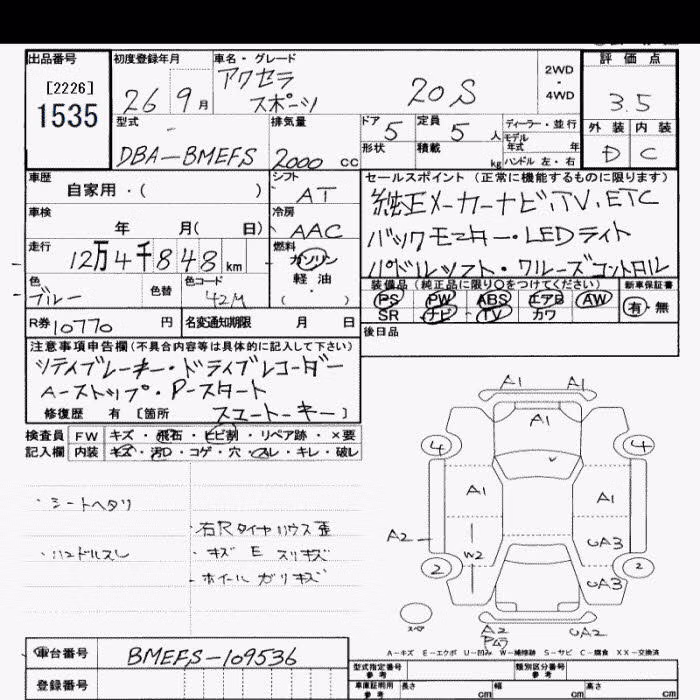 出品番号 初度登録年月 車名・グレード 2WD・4WD 評価点
[2226]
1535
26 9月 アクセラ スポーツ 20S 3.5
型式 排気量 ドア 5 定員 5人 ディーラー・並行 外装 内装
モデル年式 年
DBA-BMEFS 2000cc 形状 積載 kg ハンドル 左・右 D C
車歴 シフト セールスポイント (正常に機能するものに限ります)
自家用・( ) AT 純正メーカーナビ,TV,ETC
車検 年 月( 日) 冷房 AAC バックモニター・LEDライト
走行 12万4千848km 燃料 ガソリン パドルシフト・クルーズコントロル
軽油・( )
色 ブルー 色替 色コード 42M 装備品 (純正品に限り○をつけてください) 新車保証書
PS PW ABS エアB AW 有・無
SR ナビ TV カワ
R券 10770円 名変通知期限 月 日 後日品
注意事項申告欄(不具合内容等は具体的に記入して下さい)
シティブレーキ・ドライブレコーダー
A-ストップ・P-スタート
修復歴 有 [箇所 スマートーキー]
検査員 FW キズ・飛石・ヒビ割・リペア跡・×要
記入欄 内装 キズ・汚D・コゲ・穴・スレ・キレ・破レ
・シートヘタリ
・右Rタイヤハウス歪
・ハンドルスレ ・キズ E スリキズ
・ホイール ガリキズ
A1 A1
A1
4 4
A1 A1
A2 W2 UA3
2 UA3 2
スペア A2 UA2
A-キズ E-エクボ U-凹み W-補修跡 S-サビ C-腐食 XX-交換済
車台番号 BMEFS-109536
型式指定番号 類別区分番号
登録番号 車庫証明用参考 長さ cm 幅 cm 高さ cm